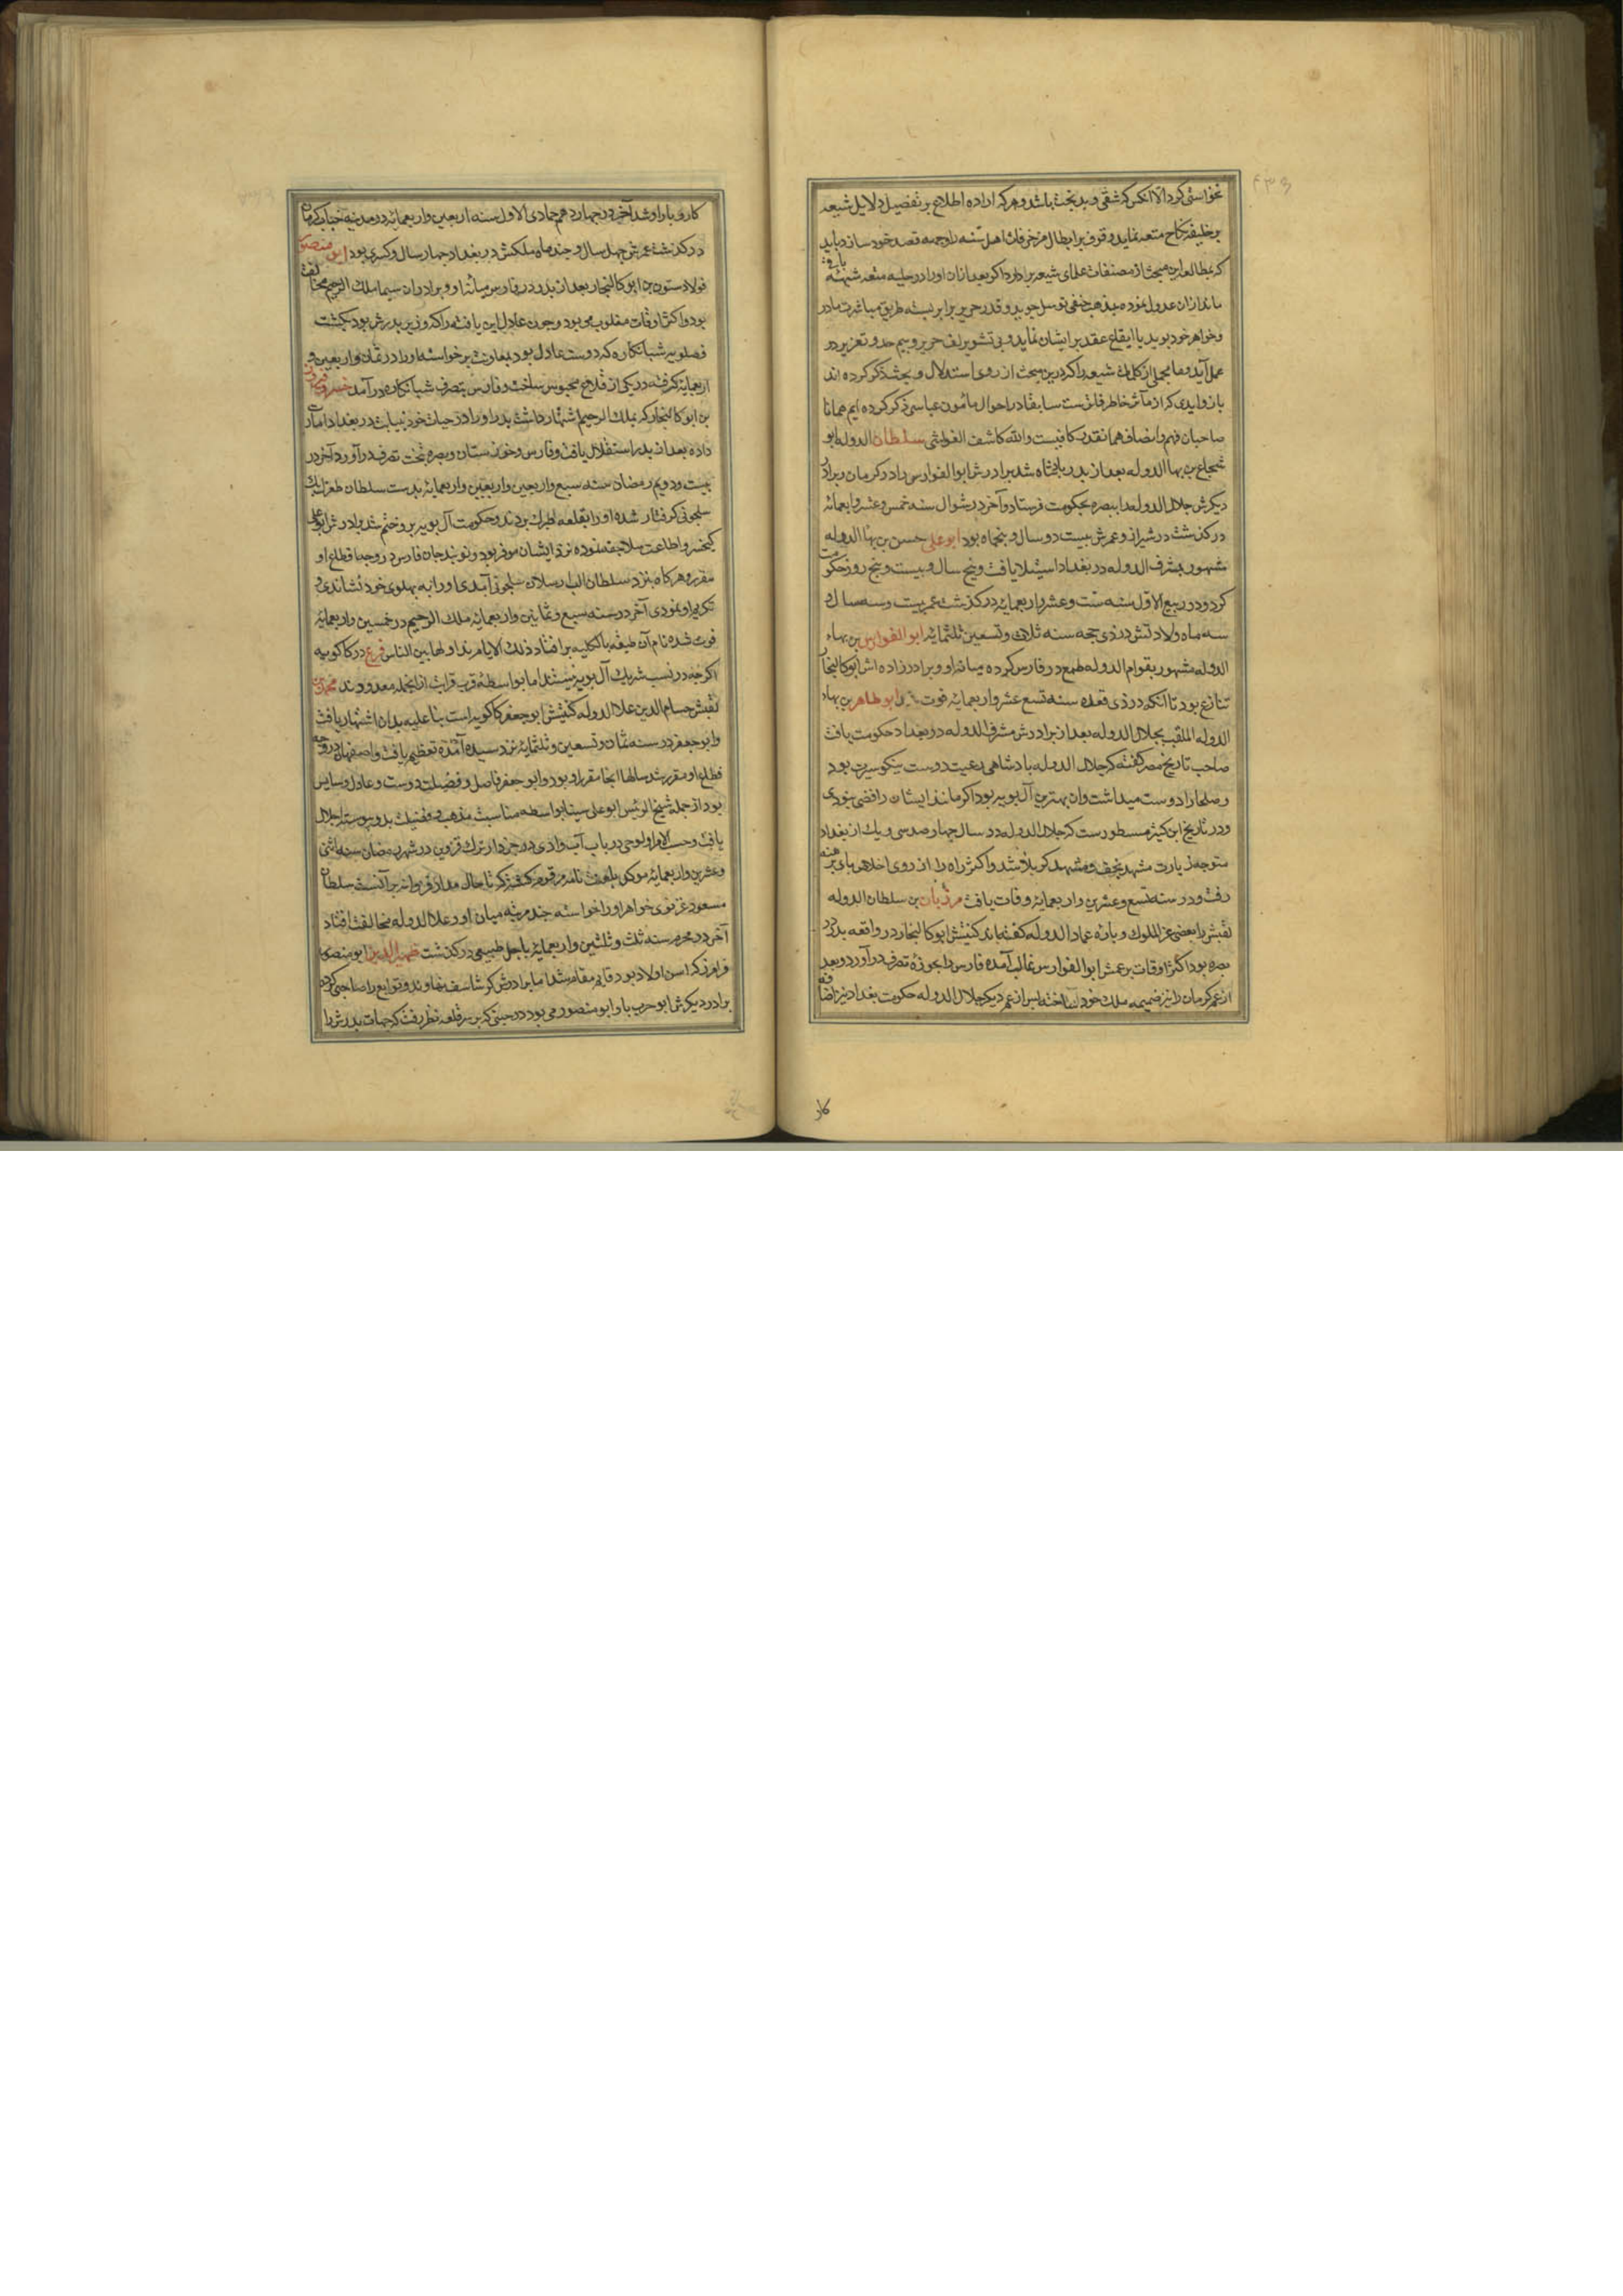 نخواستی کرد الا آنکس که شقی و بدبخت باشد و هرکه اراده اطلاع بر تفصیل دلایل شیعه
بر حقیقه نکاح متعه نماید و وقوف بر ابطال مزخرفات اهل سنه را وجهه قصد خود سازد باید
که بمطالعه این مبحث از مصنفات علمای شیعه پردازد اگر بعد از آن او را در حلیه متعه شبهه باقی
ماند از آن عدول نموده بمذهب حنفی توسل جوید و قدر حریر برابر بسته طریق مباشرت مادر
و خواهر خود پوید با ایقاع عقد بر ایشان نماید و بی تشویر لف حریر و بیم حد و تعزیر در
عمل آید و ما مجملی از کلمات شیعه را که درین مبحث از روی استدلال و بحث ذکر کرده اند
با زوایدی که از مآثر خاطر فاتر ست سابقا در احوال مأمون عباسی ذکر کرده ایم همانا
صاحبان فهم و انصاف همانقدر کافیست والله کاشف الغواشی سلطان الدوله ابو
شجاع بن بها الدوله بعد از پدر پادشاه شد برادرش ابو الفوارس را در کرمان و برادر
دیگرش جلال الدوله را ببصره بحکومت فرستاد و آخر در شوال سنه خمس و عشر و اربعمائه
درگذشت در شیراز و عمرش بیست دو سال و پنجماه بود ابو علی حسن بن بها الدوله
مشهور بشرف الدوله در بغداد استیلا یافت و پنج سال و بیست و پنج روز حکومت
کرد و در ربیع الاول سنه ست و عشر و اربعمائه درگذشت عمر بیست و سه سال و
سه ماه ولادتش در ذی حجه سنه ثلاث و تسعین ثلثمائه ابو الفوارس بن بهاء
الدوله مشهور بقوام الدوله طمع در فارس کرده میانه او و برادرزاده اش ابو کالنجار
تنازع بود تا آنکه در ذی قعده سنه تسع عشر و اربعمائه فوت شد ابو طاهر بن بهاء
الدوله الملقب بجلال الدوله بعد از برادرش مشرف الدوله در بغداد حکومت یافت
صاحب تاریخ مصر گفته که جلال الدوله پادشاهی رعیت دوست نیکو سیرت بود
و صلحا را دوست میداشت و آن بهترین آل بویه بود اگر مانند ایشان رافضی نبودی
و در تاریخ ابن کثیر مسطور ست که جلال الدوله در سال چهار صد سی و یک از بغداد
متوجه زیارت مشهد نجف و مشهد کربلا شد و اکثر راه را از روی اخلاص پای برهنه
رفت و در سنه تسع و عشرین و اربعمائه وفات یافت مرزبان بن سلطان الدوله
لقبش را بعضی عز الملوک و پاره عماد الدوله گفته اند کنیتش ابو کالنجار در واقعه پدر در
بصره بود اکثر اوقات بر عمش ابو الفوارس غالب آمده فارس را بحوزه تصرف درآورد و بعد
از عم کرمان را نیز ضمیمه ملک خود ساخته پس از عم دیگر جلال الدوله حکومت بغداد نیز اضافه
کار
کار و بار او شد آخر در چهاردهم جمادی الاول سنه اربعین و اربعمائه در مدینه خناب کرمان
درگذشت عمرش چهل سال و چند ماه ملکش در بغداد چهار سال و کسری بود ابو منصور
فولاد ستون بن ابو کالنجار بعد از پدر در فارس میانه او و برادران سیما ملک الرحیم مخالفت
بود و اکثر اوقات مغلوب می بود و چون عادل این یافته را که وزیر پدرش بود بکشت
فضلویه شبانکاره که دوست عادل بود بمعاونت برخواسته او را در ثمان و اربعین و
اربعمائه گرفته در یکی از قلاع محبوس ساخت و فارس بتصرف شبانکاره درآمد خسرو فیروز
بن ابو کالنجار که بملک الرحیم اشتهار داشت پدر او را در حیات خود نیابت در بغداد امارت
داده بعد از پدر استقلال یافت و فارس و خوزستان و بصره بتحت تصرف درآورد آخر در
بیست و دویم رمضان سنه سبع و اربعین و اربعمائه بدست سلطان طغرل بک
سلجوقی گرفتار شده او را بقلعه طبرک بردند و حکومت آل بویه برو ختم شد و برادرش ابو علی
کیخسرو اطاعت سلاجقه نموده نزد ایشان موقر بود و نوبندجان فارس در وجه اقطاع او
مقرر و هرگاه بنزد سلطان الب ارسلان سلجوقی آمدی او را به پهلوی خود نشاندی و
تکریم او نمودی آخر در سنه سبع و ثمانین و اربعمائه ملک الرحیم در خمسین و اربعمائه
فوت شده نام آن طبقه بالکلیه برافتاد و تلک الایام نداولها بین الناس فرع در کاکویه
اگرچه در نسب شریک آل بویه نیستند اما بواسطه قرب قرابت از انجمله معدودند محمد بن
لقبش حسام الدین علا الدوله کنیتش ابو جعفر کاکویه است بنا علیه بدان اشتهار یافت
و ابو جعفر در سنه ثمان و تسعین و ثلثمائه نزد سیده آمده تعظیم یافت و اصفهان در وجه
اقطاع او مقرر شد سالها انجا مقرر او بود و ابو جعفر فاضل و فضیلت دوست و عادل و سایس
بود از جمله شیخ الرئیس ابو علی سینا بواسطه مناسبت مذهب و فضیلت بدو پیوسته اجلال
یافت و حسب الامر او لوحی در باب آب وادی در خزدار ترک قزوین در شهر رمضان سنه اثنی
و عشرین و اربعمائه موکل بلعنت نامه مرقوم گشته که تا حال مدار قزوان بر آنست سلطان
مسعود غزنوی خواهر او را خواسته چند مرتبه میان او و علا الدوله مخالفت افتاد
آخر در محرم سنه ثلث و ثلثین و اربعمائه باجل طبیعی درگذشت ظهیر الدین ابو منصور
فرامرز که اسن اولاد بود قایم مقام شد اما برادرش گرشاسف نهاوند و توابع را صاحبی کرده
برادر دیگرش ابو حرب با ابو منصور می بود در حینی که بر سر قلعه نطنز رفت که جهات پدرش را